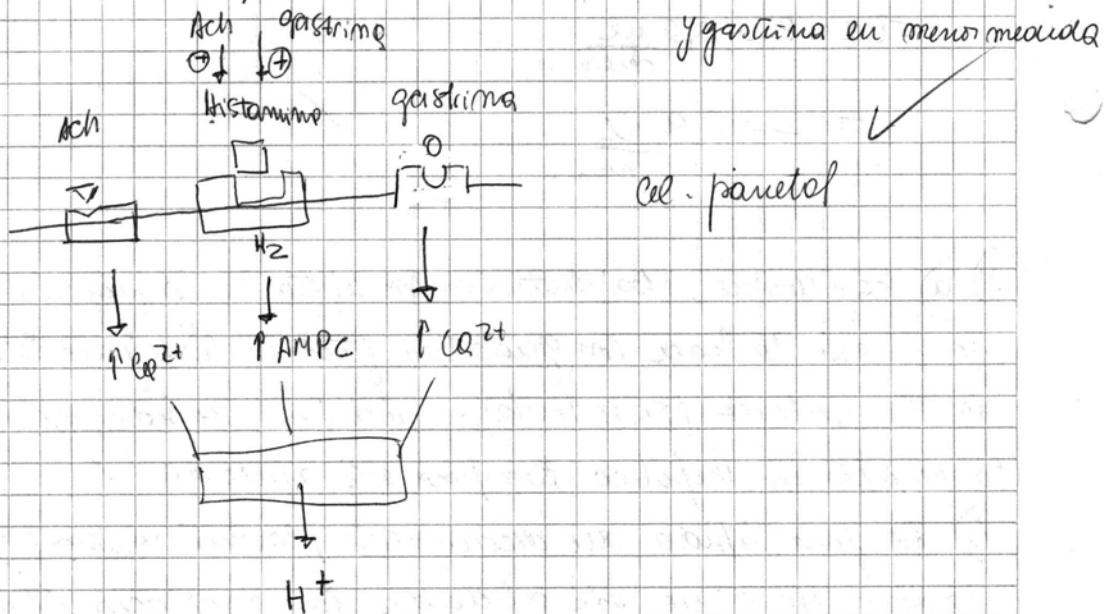 Ach gastrina
y gastrina en menor medida
⊕ ⊕
Histamina
gastrina
Ach
Cel. parietal
H2
↑ Ca2+
↑ AMPc
↑ Ca2+
H+